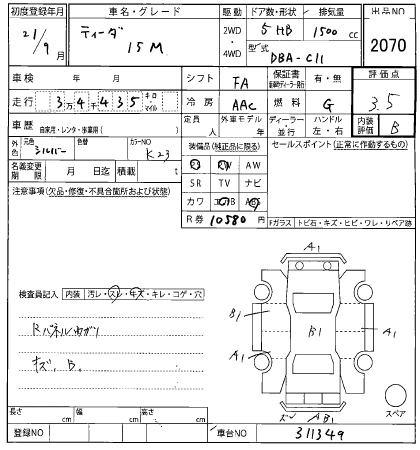 初度登録年月 車名・グレード 駆動 ドア数・形状 排気量 出品NO
21/9月 ティーダ 15M 2WD・4WD 5 HB 1500cc 2070
型式 DBA-C11
車検 年 月 シフト FA 保証書 有・無 評価点 3.5
走行 3万4千435 キロ・マイル 冷房 AAC 燃料 G 内装評価 B
車歴 自家用・レンタ・事業用( ) 定員 人 外車モデル 年 ディーラー・並行 ハンドル 左・右
外色 元色 シルバー 色替 カラーNO K23 装備品(純正品に限る) セールスポイント(正常に作動するもの)
名義変更期限 月 日迄 積載 t PS PW AW
注意事項(欠品・修復・不具合箇所および状態) SR TV ナビ
カワ エアB ABS
R券 10580 円 Fガラス トビ石・キズ・ヒビ・ワレ・リペア跡
A1
検査員記入 内装 汚レ・スレ・キズ・キレ・コゲ・穴
B1 B1 A1
Rパネルマガリ A1
キズ、B。
スペア
長さ cm 幅 cm 高さ cm AB1
登録NO 車台NO 311349